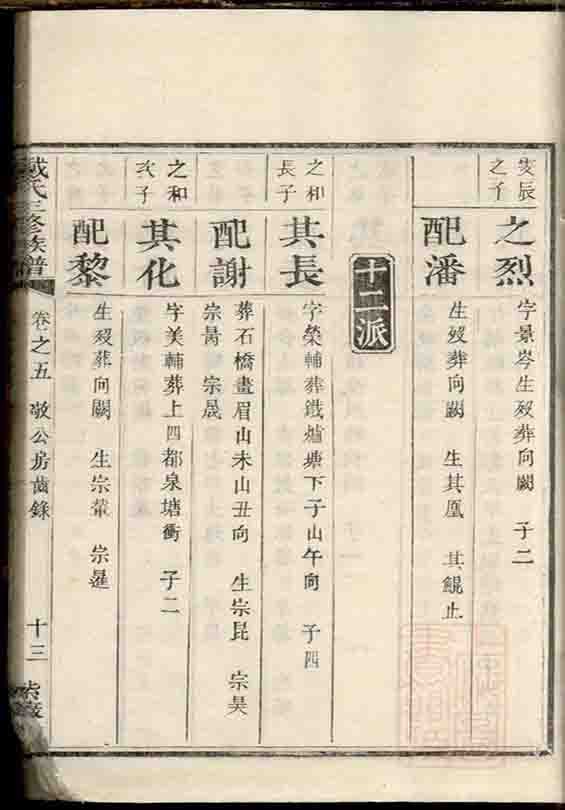 之子
之烈
字景岑生歿葬向闕 子二
配潘
生歿葬向闕 生其凰 其鯤止
十二派
之和
長子
其長
字榮輔葬鐵爐塘下子山午向 子四
配謝
葬石橋畫眉山未山丑向 生宗昆 宗昊
宗晟
之和
次子
其化
字美輔葬上四都泉塘衝 子二
配黎
生歿葬向闕 生宗葷 宗暹
戴氏三修族譜
卷之五 敬公房齒錄
十三